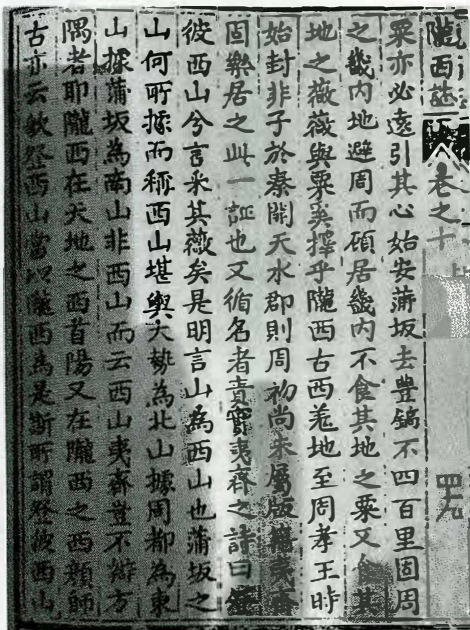 隴西誌 卷之十
粟亦必遠引其心始安蒲坂去豐鎬不四百里固周
之畿内地避周而碩居畿内不食其地之粟又食其
地之薇薇與粟奚擇乎隴西古西羗地至周孝王時
始封非子於秦開天水郡則周初尚未屬版籍夷齊
固樂居之此一証也又循名者責實夷齊之詩曰登
彼西山兮言采其薇矣是明言山為西山也蒲坂之
山何所據而稱西山堪輿大勢為北山據周都為東
山據蒲坂為南山非西山而云西山夷齊豈不辨方
隅者耶隴西在天地之西首陽又在隴西之西顏師
古亦云欽祭西山當以隴西為是斯所謂登彼西山